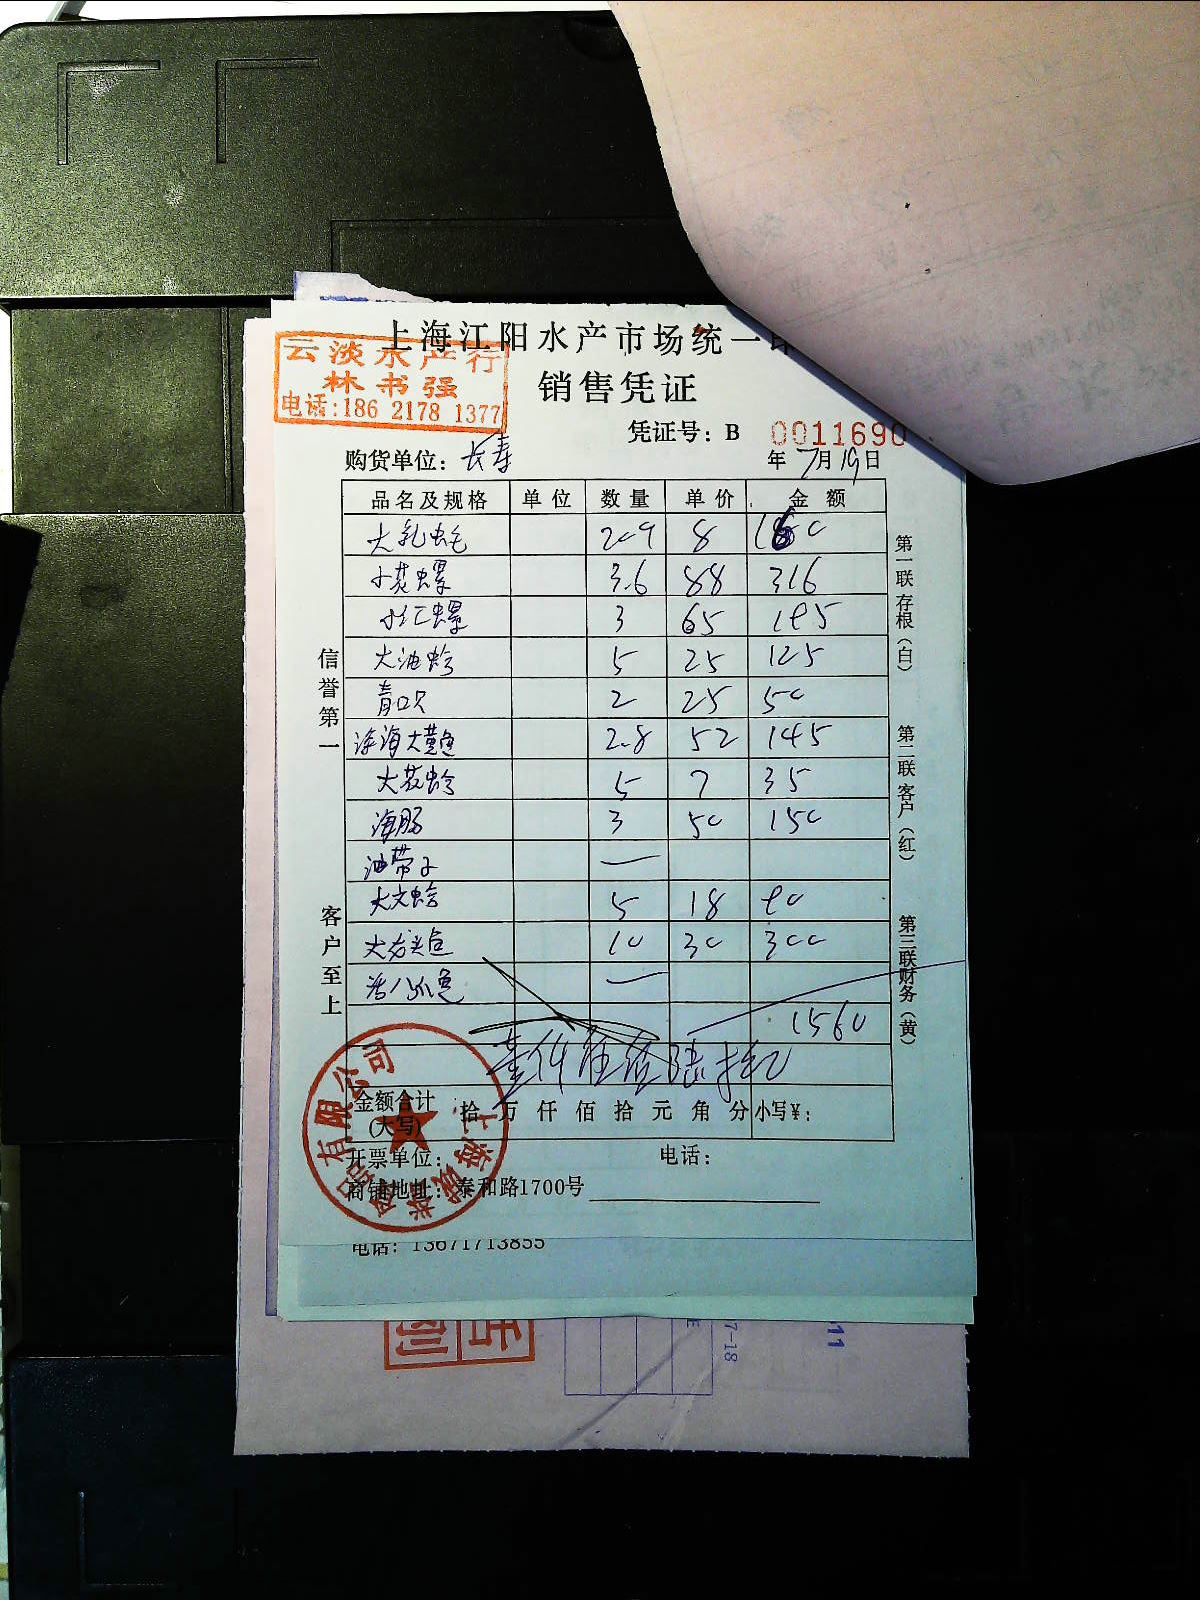 上海江阳水产市场统一印
云淡水产行
林书强
电话:186 2178 1377
销售凭证
凭证号: B 0011690
购货单位: 长寿
年 7月19日
品名及规格 单位 数量 单价 金额
8
小花螺 3.6 88 316
小红螺 3 65 195
大油蛤 5 25 125
青口贝 2 25 50
深海大黄鱼 2.8 52 145
大花蛤 5 7 35
海肠 3 50 150
油带子 —
大文蛤 5 18 90
10 30 300
活八爪鱼 —
1560
壹仟伍佰陆拾元
金额合计(大写) 拾 万 仟 佰 拾 元 角 分 小写¥:
开票单位: 电话:
商铺地址: 泰和路1700号
信誉第一
客户至上
第一联存根(白)
第二联客户(红)
第三联财务(黄)
有限公司
上海
电话: 13671713855
7-18
11